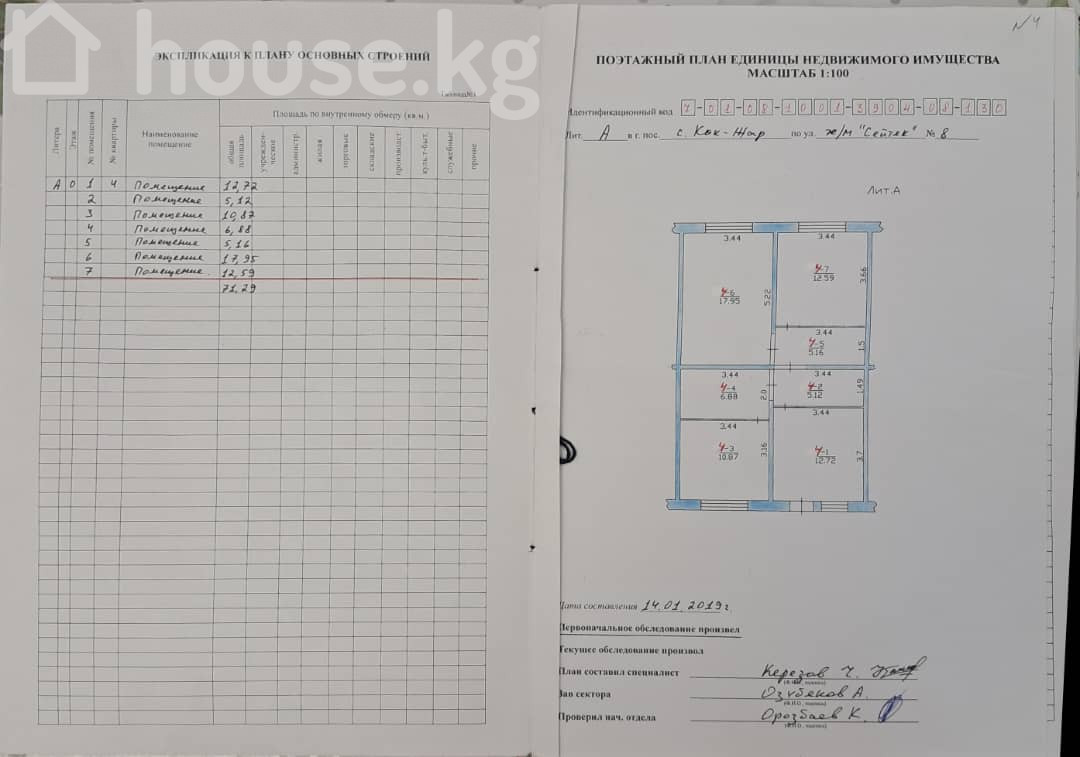 house.kg
ЭКСПЛИКАЦИЯ К ПЛАНУ ОСНОВНЫХ СТРОЕНИЙ
Литера
Этаж
№ помещения
№ квартиры
Наименование помещение
Площадь по внутреннему обмеру (кв.м.)
общая площадь
учрежден-ческое
администр.
жилая
торговые
складские
производст.
культ-быт.
служебные
прочие
А 0 1 4 Помещение 12,72
2 Помещение 5,12
3 Помещение 10,87
4 Помещение 6,88
5 Помещение 5,16
6 Помещение 17,95
7 Помещение 12,59
71,29
№4
ПОЭТАЖНЫЙ ПЛАН ЕДИНИЦЫ НЕДВИЖИМОГО ИМУЩЕСТВА
МАСШТАБ 1:100
Идентификационный код 7-01-08-1001-3904-08-130
Лит. А в г. пос. с. Кок-Жар по ул. ж/м "Сейтек" № 8
ЛИТ.А
3.44 3.44
4-6
17.95
5.22
4-7
12.59
3.66
3.44
4-5
5.16
1.5
3.44 3.44
4-4
6.88
2.0
4-2
5.12
1.49
3.44 3.44
4-3
10.87
3.16
4-1
12.72
3.7
Дата составления 14.01.2019г.
Первоначальное обследование произвел
Текущее обследование произвол
План составил специалист Керезов Ч.
(Ф.И.О., подпись)
Зав сектора Озубеков А.
(Ф.И.О., подпись)
Проверил нач. отдела Орозбаев К.
(Ф.И.О., подпись)